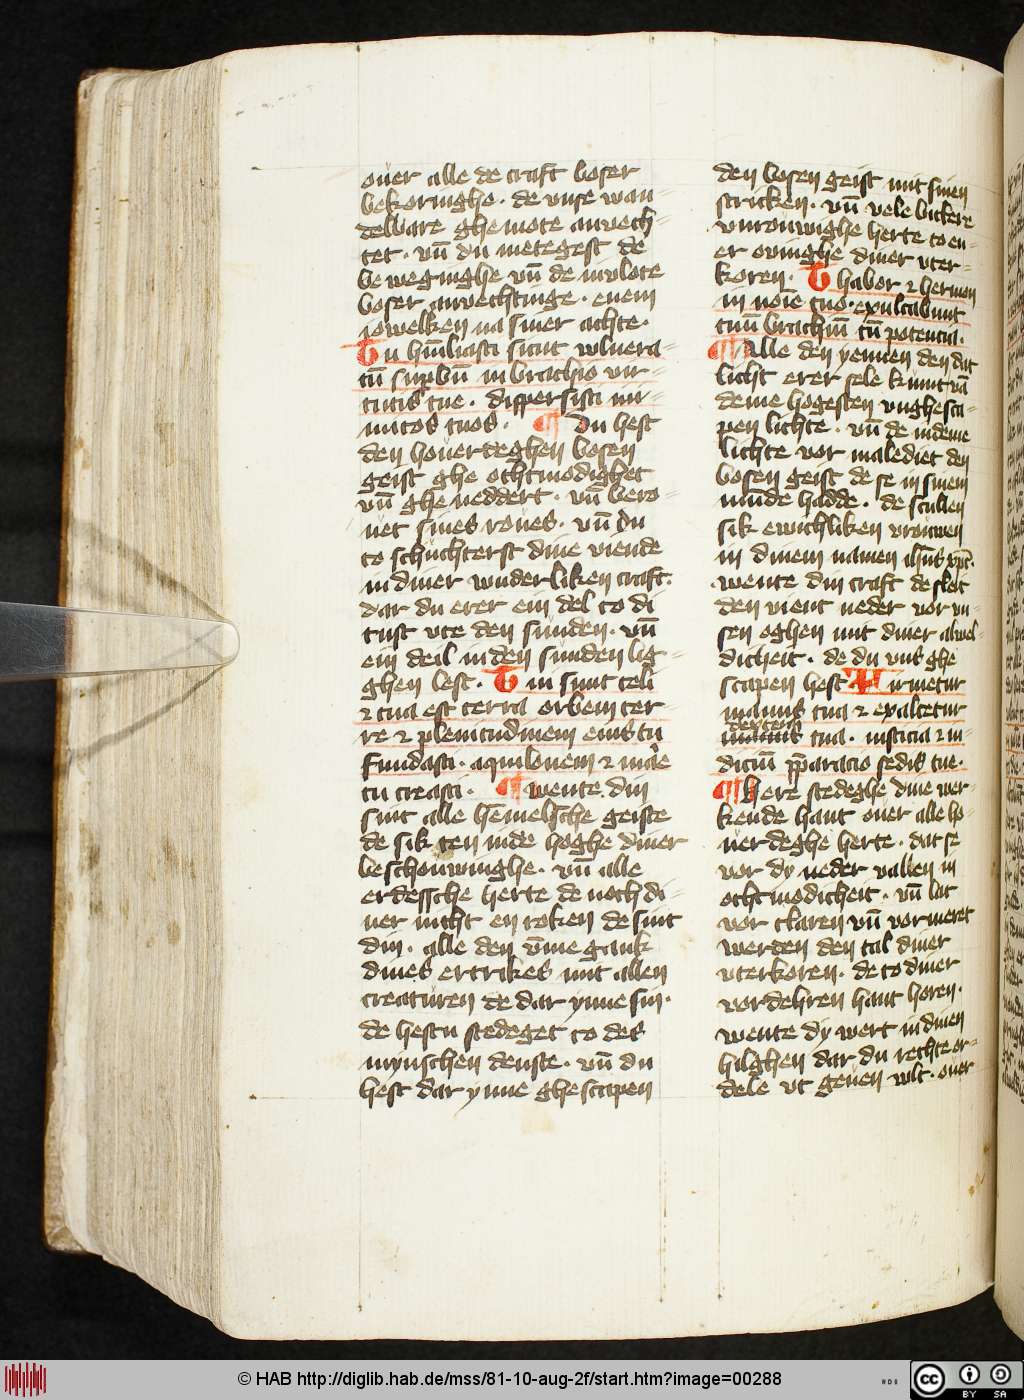 ouer alle de craft boser
bekoringhe · de vnse wan
delbare ghemote anvech-
tet · vn̄ du metegest de
beweginghe vn̄ de invlote
boser anvechtinge · enem
iowelken na siner achte ·
Tu hūiliasti sicut wlnera-
tū supbū in brachio vir-
tutis tue · dispersisti ini-
micos tuos · ¶ Du hest
den houerdeghen bosen
geist ghe othmodighet
vn̄ ghe neddert · vn̄ bero-
uet sines roues · vn̄ du
to schuchterst dine viende
in diner wnderliken craft ·
dar du erer ein del to di
tust vte den sunden · vn̄
ein deil in den sunden lig-
ghen lest · Tui sunt celi
⁊ tua est terra orbem ter-
re ⁊ plenitudinem eius tu
fundasti · aquilonem ⁊ mar̄e
tu creasti · ¶ wente din
sint alle hēmelsche geiste
de sik ten inde hoghe diner
beschouwinghe · vn̄ alle
erdessche herte de noch di-
ner nicht en roken de sint
din · alle den vm̄e gank
dines ertrikes mit allen
creaturen de dar ynne sin ·
de hestu stedeget to des
mynschen denste · vn̄ du
hest dar ynne ghescapen
den bosen geist mit sinen
stricken · vn̄ vele bickere
vnrouwighe herte to en-
er ovinghe diner vter-
koren · Thabor ⁊ hermon
in noīe tuo · exultabunt
tuū brachiū cū potencia ·
¶ Alle den yennen den dat
licht erer sele kumt vā
deme hogesten vnghesca-
pen lichte · vn̄ de in deme
lichte vor maledict den
bosen geist de se in sinem
munde hadde · de scullen
sik ewichliken vrouwen
in dinem namen ih̄us xp̄c
wente din craft de sleit
den vient neder vor vn-
sen oghen mit diner alwel-
dicheit · de du vns ghe
scapen hest Firmetur
manus tua ⁊ exaltetur
dextera
manus tua · iusticia ⁊ iu-
diciū p̄paracio sedis tue ·
¶ Here stedeghe dine wer-
kende hant ouer alle ho-
uerdeghe herte · dat se
vor dy neder vallen in
othmodicheit · vn̄ lat
vor claren vn̄ vormeret
werden den tal diner
vterkoren · de to diner
vorderen hant horen ·
wente dy wert in dinen
hilghen dar du rechte or-
dele vt geuen wlt · ouer
© HAB http://diglib.hab.de/mss/81-10-aug-2f/start.htm?image=00288
cc BY SA